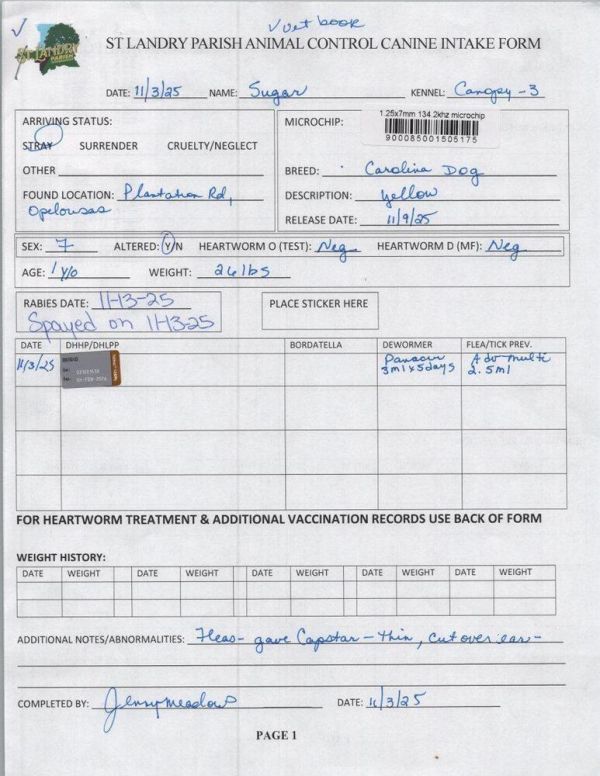 ✓ vet book
ST LANDRY
PARISH
ST LANDRY PARISH ANIMAL CONTROL CANINE INTAKE FORM
DATE: 11/3/25 NAME: Sugar KENNEL: Canopy-3
ARRIVING STATUS:
STRAY SURRENDER CRUELTY/NEGLECT
OTHER
FOUND LOCATION: Plantation Rd,
Opelousas
MICROCHIP: 1.25x7mm 134.2khz microchip
900085001505175
BREED: Carolina Dog
DESCRIPTION: yellow
RELEASE DATE: 11/9/25
SEX: F ALTERED: Y/N HEARTWORM O (TEST): Neg HEARTWORM D (MF): Neg
AGE: 1 y/o WEIGHT: 26 lbs
RABIES DATE: 11-13-25
Spayed on 11-13-25
PLACE STICKER HERE
DATE DHHP/DHLPP BORDATELLA DEWORMER FLEA/TICK PREV.
11/3/25 Panacur Advmulti
3ml x 5days 2.5ml
FOR HEARTWORM TREATMENT & ADDITIONAL VACCINATION RECORDS USE BACK OF FORM
WEIGHT HISTORY:
DATE WEIGHT DATE WEIGHT DATE WEIGHT DATE WEIGHT DATE WEIGHT
ADDITIONAL NOTES/ABNORMALITIES: Fleas- gave Capstar - thin, cut over ear-
COMPLETED BY: Jenny Meadows DATE: 11/3/25
PAGE 1